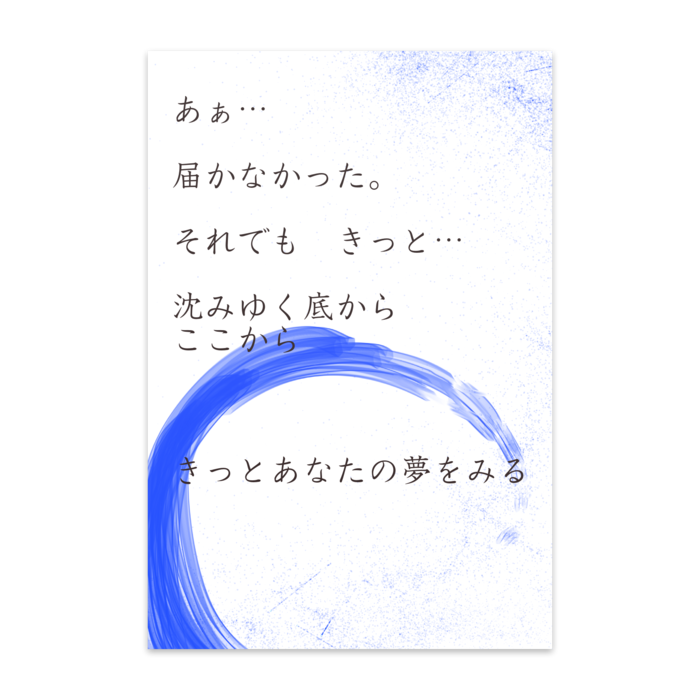 あぁ…
届かなかった。
それでも　きっと…
沈みゆく底から
ここから
きっとあなたの夢をみる